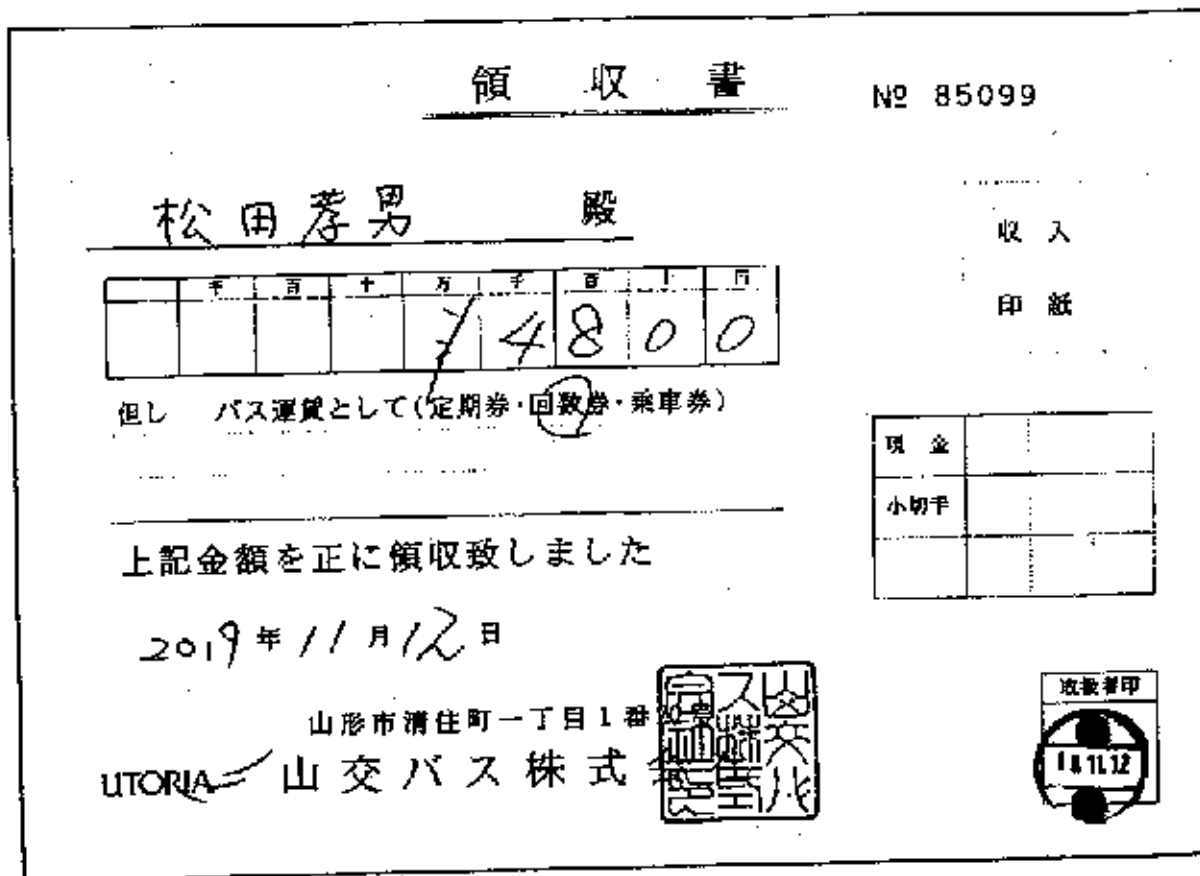 領収書
№ 85099
松田孝男 殿
収入
印紙
千 百 十 万 千 百 十 円
¥4800
但し バス運賃として(定期券・回数券・乗車券)
現金
小切手
上記金額を正に領収致しました
2019年11月12日
山形市清住町一丁目1番20号
UTORIA 山交バス株式会
取扱者印
11.12